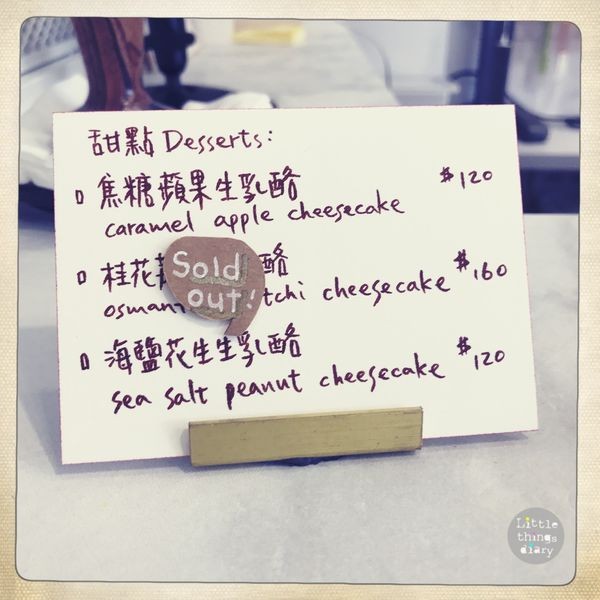 甜點 Desserts:
焦糖蘋果生乳酪 $120
caramel apple cheesecake
桂花 酪 $160
cheesecake
Sold
out!
海鹽花生生乳酪 $120
sea salt peanut cheesecake
Little
things
diary